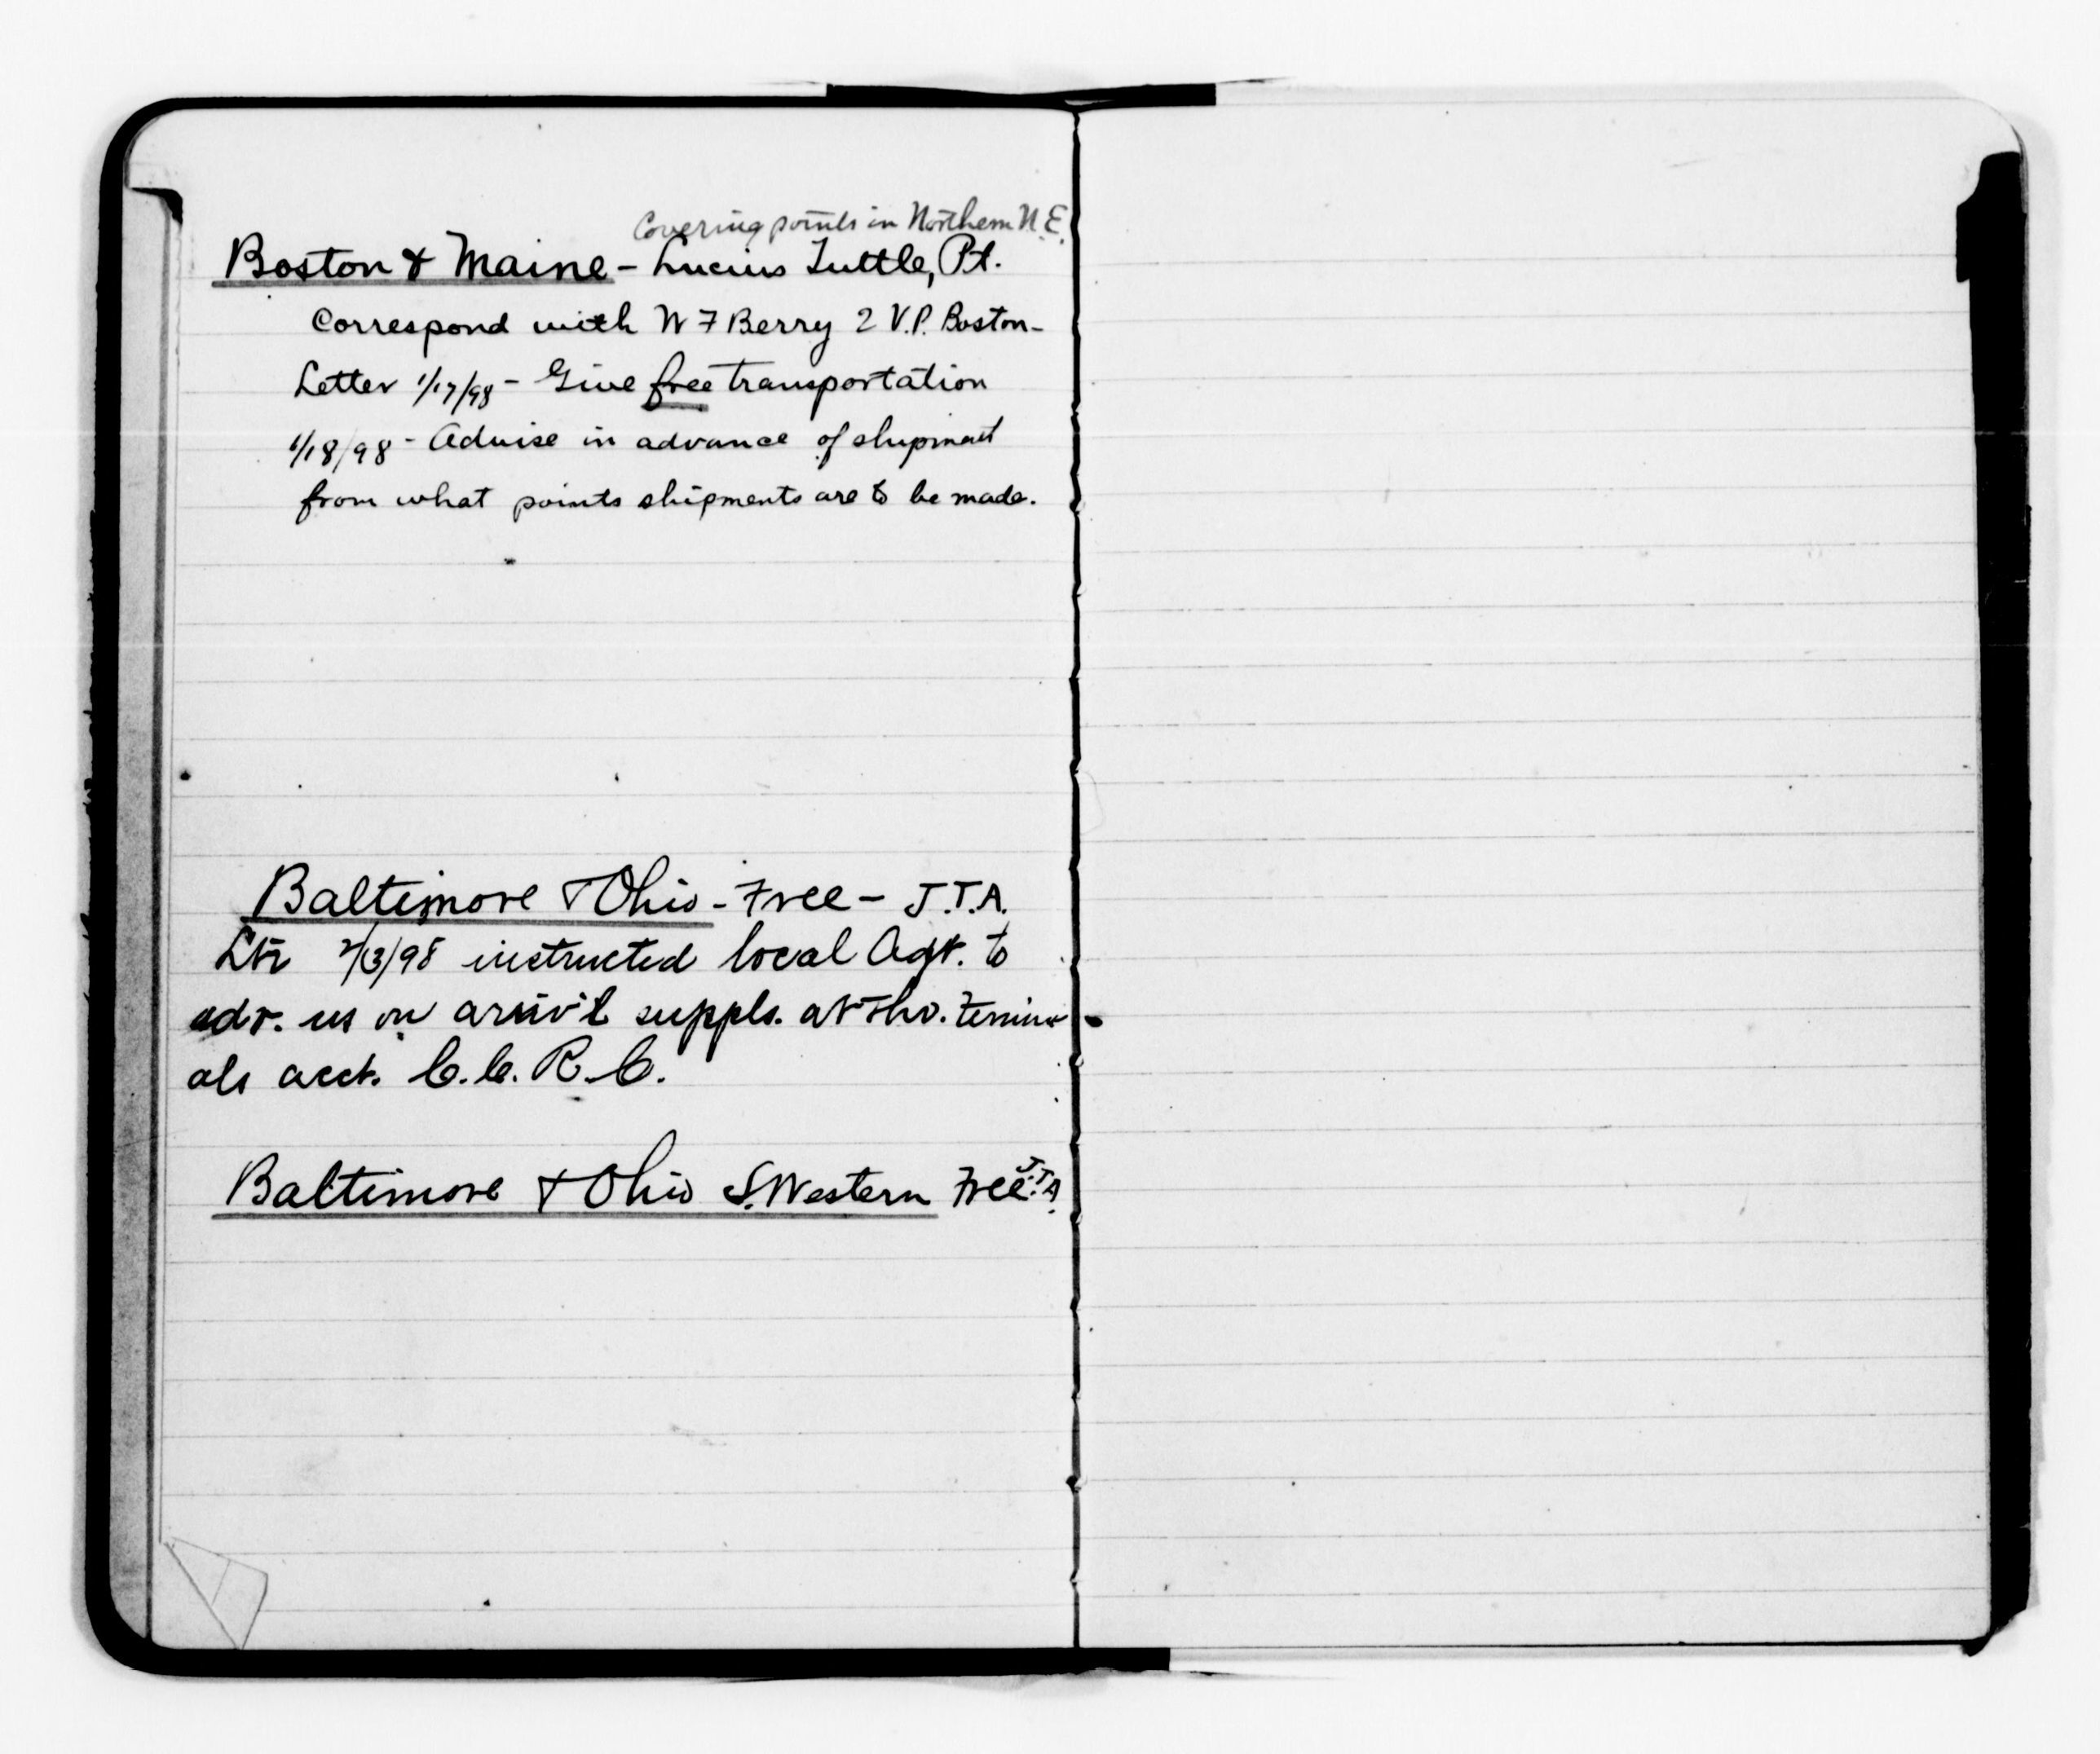 Covering points in Northern N.E.
Boston & Maine - Lucius Tuttle, Pt.
Correspond with W F Berry 2 V.P. Boston-
Letter 1/17/98 - Give free transportation
1/18/98 - Advise in advance of shipment
from what points shipments are to be made.
Baltimore & Ohio - Free - J.T.A.
Ltr 2/3/98 instructed local Agt. to
adv. us on arriv'l suppls. at
als acct. C.C.R.C.
Baltimore & Ohio S. Western Free J.T.A.